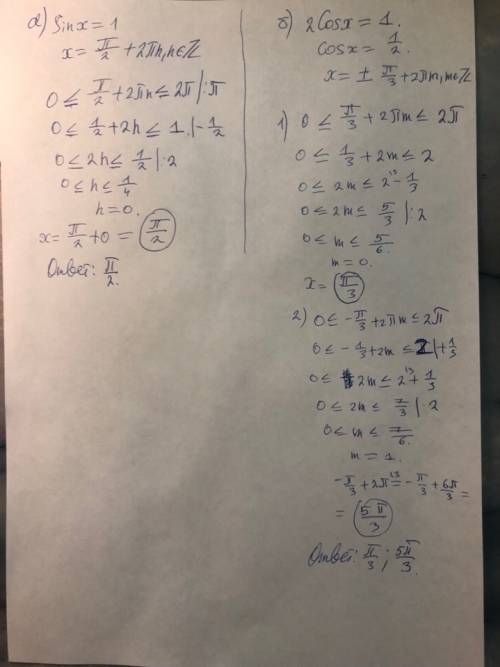 а) Sinx = 1
x = π/2 + 2πn, n∈Z
0 ≤ π/2 + 2πn ≤ 2π |:π
0 ≤ 1/2 + 2n ≤ 1. |-1/2
0 ≤ 2n ≤ 1/2 |:2
0 ≤ n ≤ 1/4
n = 0.
x = π/2 + 0 = π/2
Ответ: π/2.
б) 2Cosx = 1.
Cosx = 1/2.
x = ± π/3 + 2πm, m∈Z
1) 0 ≤ π/3 + 2πm ≤ 2π
0 ≤ 1/3 + 2m ≤ 2
0 ≤ 2m ≤ 2^13 - 1/3
0 ≤ 2m ≤ 5/3 |:2
0 ≤ m ≤ 5/6.
m = 0.
x = π/3
2) 0 ≤ -π/3 + 2πm ≤ 2π
0 ≤ -1/3 + 2m ≤ 2 |+1/3
0 ≤ 2m ≤ 2^13 + 1/3
0 ≤ 2m ≤ 7/3 |:2
0 ≤ m ≤ 7/6.
m = 1.
-π/3 + 2π^13 = -π/3 + 6π/3 =
= 5π/3
Ответ: π/3; 5π/3.